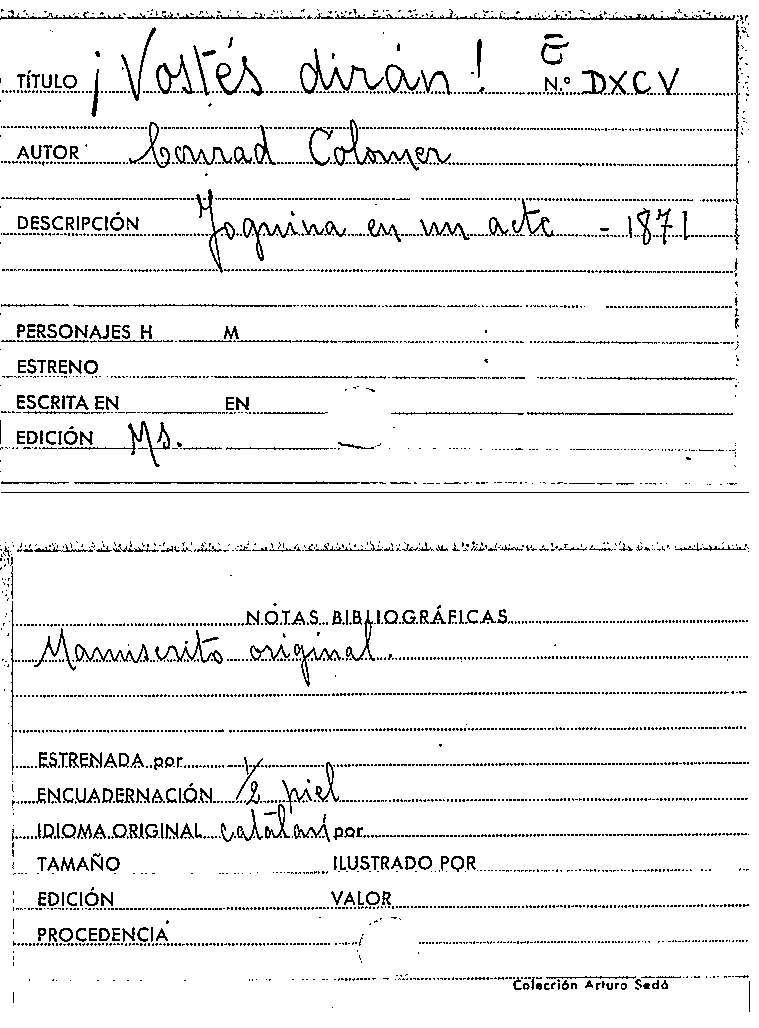 E
TÍTULO ¡Vostés dirán! N.º DXCV
AUTOR Conrad Colomer
DESCRIPCIÓN Joguina en un acte - 1871
PERSONAJES H M
ESTRENO
ESCRITA EN EN
EDICIÓN Ms.
NOTAS BIBLIOGRÁFICAS
Manuscrito original.
ESTRENADA por
ENCUADERNACIÓN 1/2 piel
IDIOMA ORIGINAL catalán por
TAMAÑO ILUSTRADO POR
EDICIÓN VALOR
PROCEDENCIA
Colección Arturo Sedó